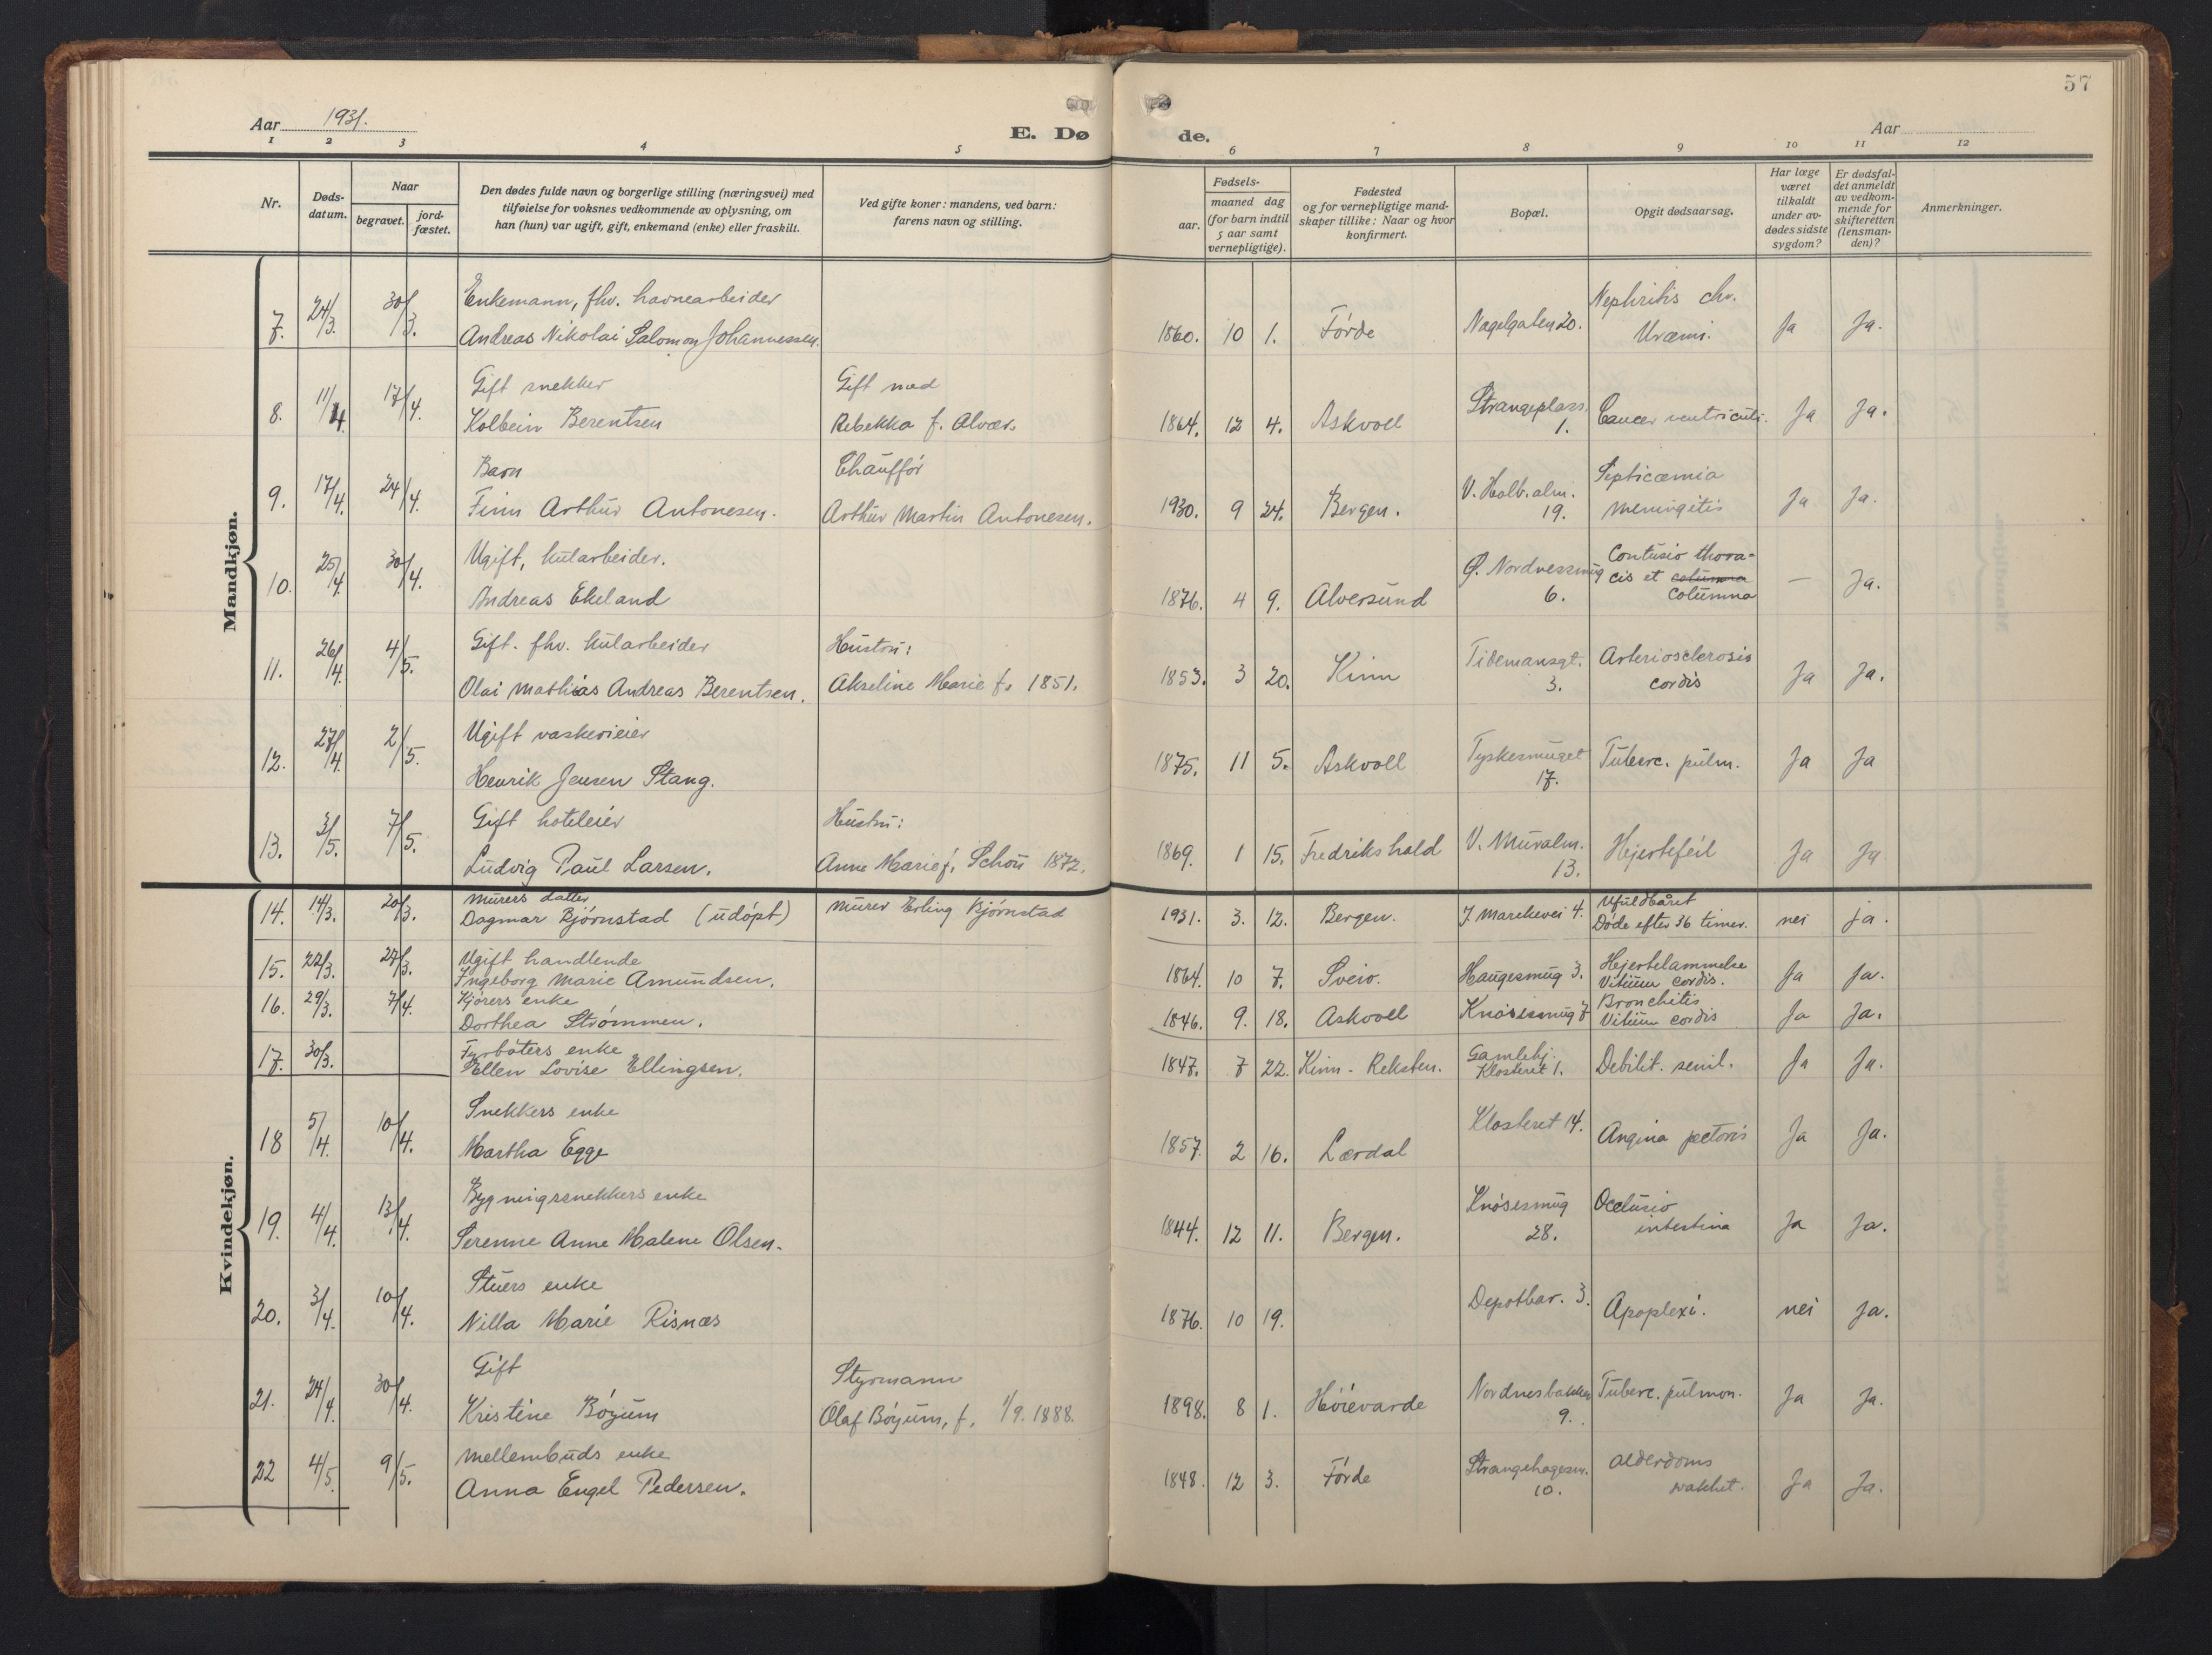 57
Aar 1931.
E. Dø de.
Aar
1 2 3 4 5 6 7 8 9 10 11 12
Nr.
Døds-
datum.
Naar
begravet.
jord-
fæstet.
Den dødes fulde navn og borgerlige stilling (næringsvei) med
tilføielse for voksnes vedkommende av oplysning, om
han (hun) var ugift, gift, enkemand (enke) eller fraskilt.
Ved gifte koner: mandens, ved barn:
farens navn og stilling.
Fødsels-
aar.
maaned dag
(for barn indtil
5 aar samt
vernepligtige).
Fødested
og for vernepligtige mand-
skaper tillike: Naar og hvor
konfirmert.
Bopæl.
Opgit dødsaarsag.
Har læge
været
tilkaldt
under av-
dødes sidste
sygdom?
Er dødsfal-
det anmeldt
av vedkom-
mende for
skifteretten
(lensman-
den)?
Anmerkninger.
Mandkjøn.
Enkemann, fhv. havnearbeider Nephritis chr.
7. 24/3. 30/3. Andreas Nikolai Salomon Johannessen. 1860. 10 1. Førde Nagelgaten 20. Uræmi. Ja Ja.
Gift snekker Gift med Strangeplass.
8. 11/4. 17/4. Kolbein Berentsen Rebekka f. Alvær. 1864. 12 4. Askvoll 1. Cancer ventriculi. Ja Ja.
Barn Chauffør V. Holb.alm. Septicæmia
9. 17/4. 24/4. Finn Arthur Antonesen. Arthur Martin Antonesen. 1930. 9 24. Bergen. 19. meningitis Ja Ja.
Ugift, kularbeider. Ø. Nordnessmug Contusio thora-
cis et columna
10. 25/4. 30/4. Andreas Ekeland 1876. 4 9. Alversund 6. columna — Ja.
Gift. fhv. kularbeider Hustru: Tidemansgt. Arteriosclerosis
11. 26/4. 4/5. Olai Mathias Andreas Berentsen. Akseline Marie f. 1851. 1853. 3 20. Kinn 3. cordis Ja Ja.
Ugift vaskerieier Tyskesmuget
12. 27/4. 2/5. Henrik Jensen Stang. 1875. 11 5. Askvoll 17. Tuberc. pulm. Ja Ja
Gift hoteleier Hustru: V. Muralm.
13. 3/5. 7/5. Ludvig Paul Larsen. Anne Marie f. Schou 1872. 1869. 1 15. Fredrikshald 13. Hjertefeil Ja Ja
Kvindekjøn.
Murers datter Ufuldbåret
14. 14/3. 20/3. Dagmar Bjørnstad (udøpt) Murer Erling Bjørnstad 1931. 3. 12. Bergen. 4. Døde efter 36 timer. nei ja.
Ugift handlende Hjertelammelse
15. 22/3. 27/3. Ingeborg Marie Amundsen. 1864. 10 7. Sveio. Haugesmug 3. Vitium cordis. Ja Ja.
Kjørers enke Bronchitis
16. 29/3. 7/4. Dorthea Strømmen. 1846. 9. 18. Askvoll Knøsesmug 7 Vitium cordis Ja Ja.
Fyrbøters enke Gamlehj.
17. 30/3. Ellen Lovise Ellingsen. 1847. 7 22. Kinn - Reksten. Klosteret 1. Debilit. senil. Ja Ja.
Snekkers enke Klosteret 14.
18 5/4. 10/4. Martha Egge 1857 2 16. Lærdal Angina pectoris Ja Ja.
Bygningssnekkers enke Knøsesmug Occlusio
19. 4/4. 13/4. Serenne Anne Malene Olsen. 1844. 12 11. Bergen. 28. intestina Ja Ja.
Stuers enke Depotbar. 3.
20. 3/4. 10/4. Nilla Marie Risnæs 1876. 10 19. Apoplexi. nei Ja.
Gift Styrmann Nordnesbakken
21. 24/4. 30/4. Kristine Bøyum Olaf Bøyum, f. 1/9. 1888. 1898. 8 1. Høievarde 9. Tuberc. pulmon. Ja Ja.
Mellembuds enke Strangehagesm. Alderdoms
22 4/5. 9/5. Anna Engel Pedersen. 1848. 12 3. Førde 10. svakhet. Ja Ja.